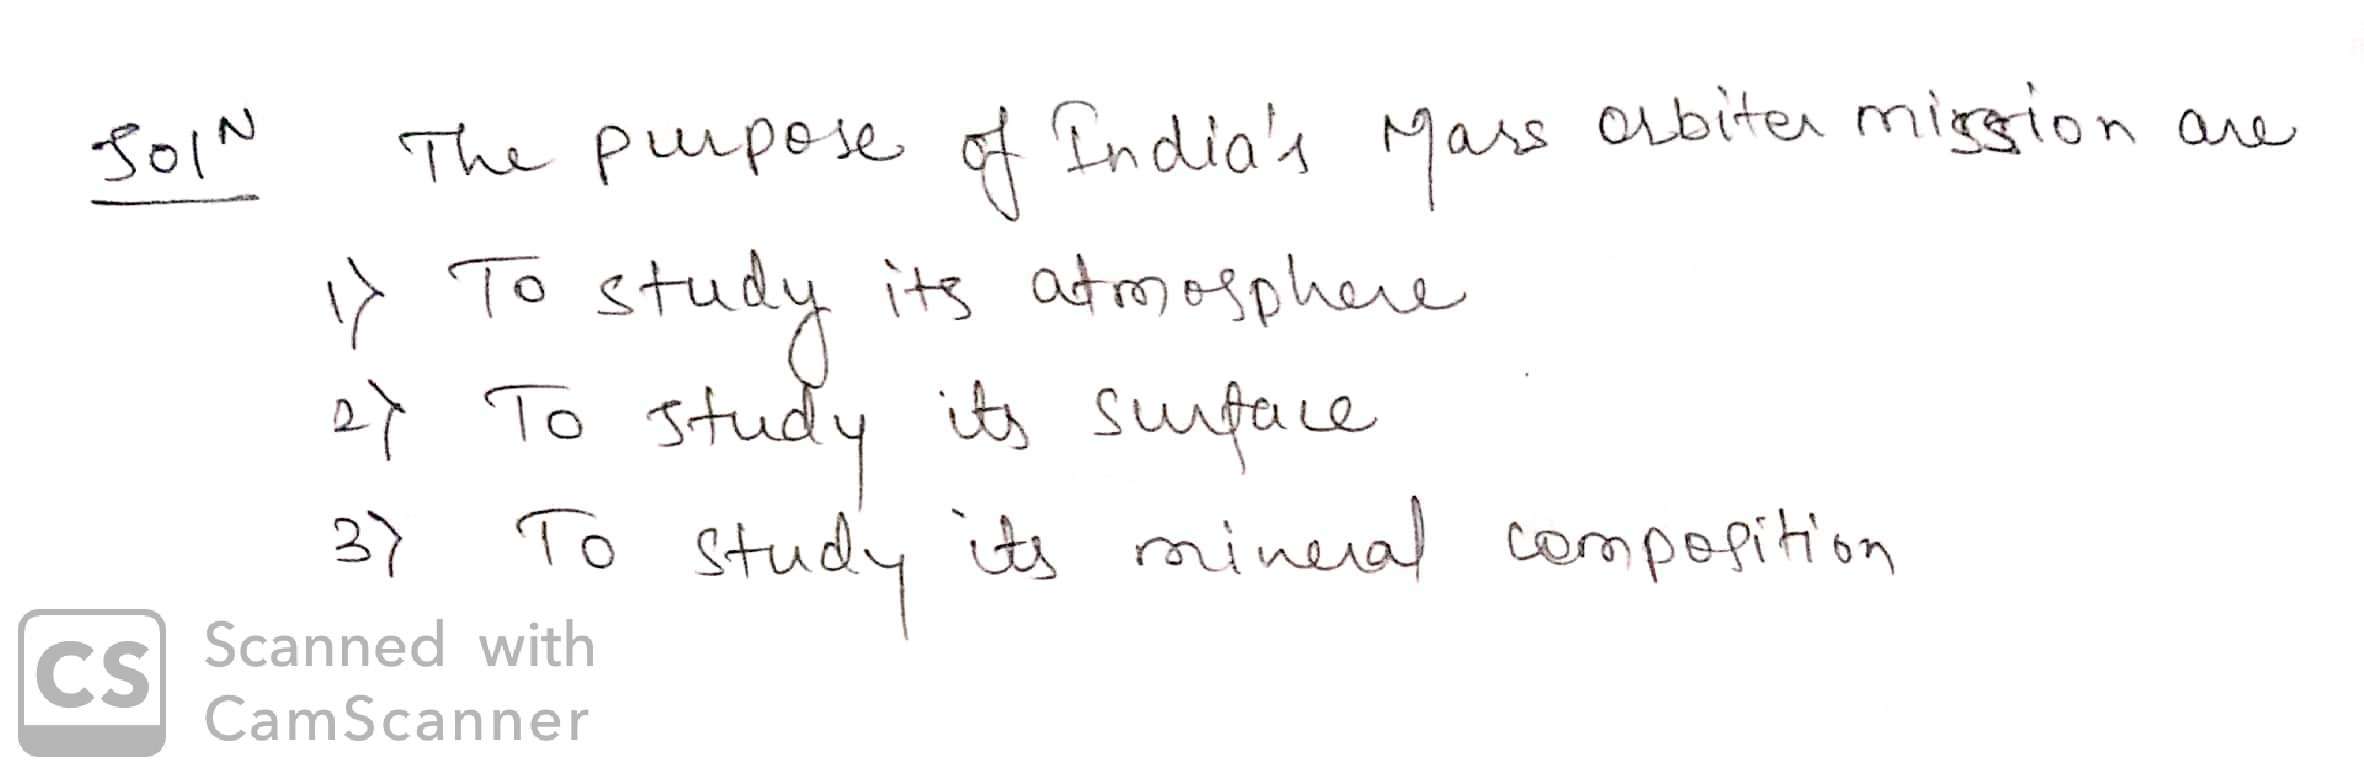 Solᴺ The purpose of India's Mars orbiter mission are
1) To study its atmosphere
2) To study its surface
3) To study its mineral composition
CS Scanned with
CamScanner